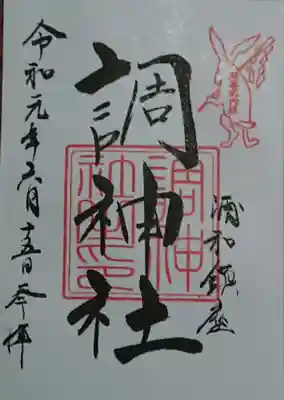 浦和鎮座
調神社
調神
社之印
令和元年六月十五日参拝